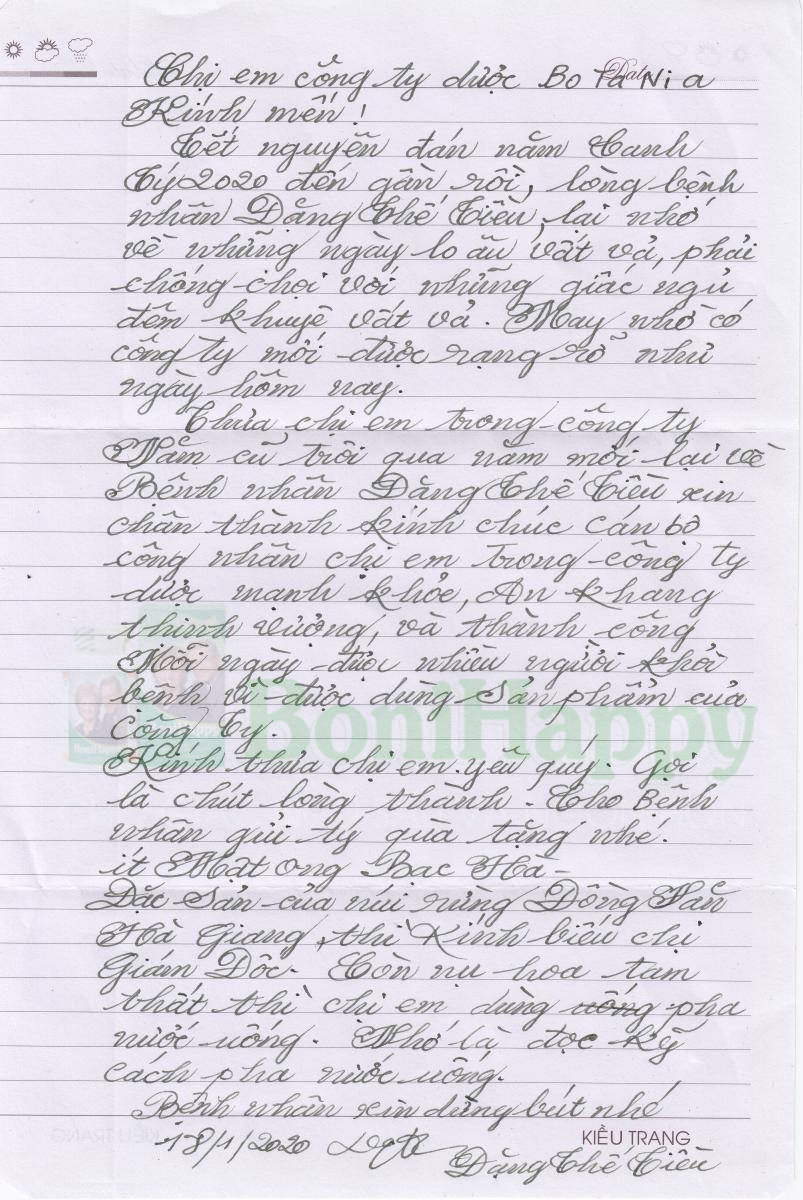 Date
Chị em công ty dược BoTaNia
Kính mến!
Tết nguyên đán năm Canh
Tý 2020 đến gần rồi, lòng bệnh
nhân Đặng Thế Tiều, lại nhớ
về những ngày lo âu vất vả, phải
chống chọi với những giấc ngủ
đêm khuyê vất vả. May nhờ có
công ty mới được rạng rỡ như
ngày hôm nay.
Thưa chị em trong công ty
Năm cũ trôi qua năm mới lại về
Bệnh nhân Đặng Thế Tiều xin
chân thành kính chúc cán bộ
công nhân chị em trong công ty
dược mạnh khỏe, An khang
thịnh vượng, và thành công
Mỗi ngày được nhiều người khỏi
bệnh vì được dùng sản phẩm của
Công Ty.
BoniHappy
Kính thưa chị em yêu quý. Gọi
là chút lòng thành. Cho Bệnh
nhân gửi tý quà tặng nhé.
ít Mật ong Bạc Hà -
Đặc sản của núi rừng Đồng Văn
Hà Giang, thì Kính biếu chị
Giám Đốc. Còn nụ hoa tam
thất thì chị em dùng uống pha
nước uống. Nhớ là đọc kỹ
cách pha nước uống.
Bệnh nhân xin dừng bút nhé
18/1/2020
KIỀU TRANG
Đặng Thế Tiều